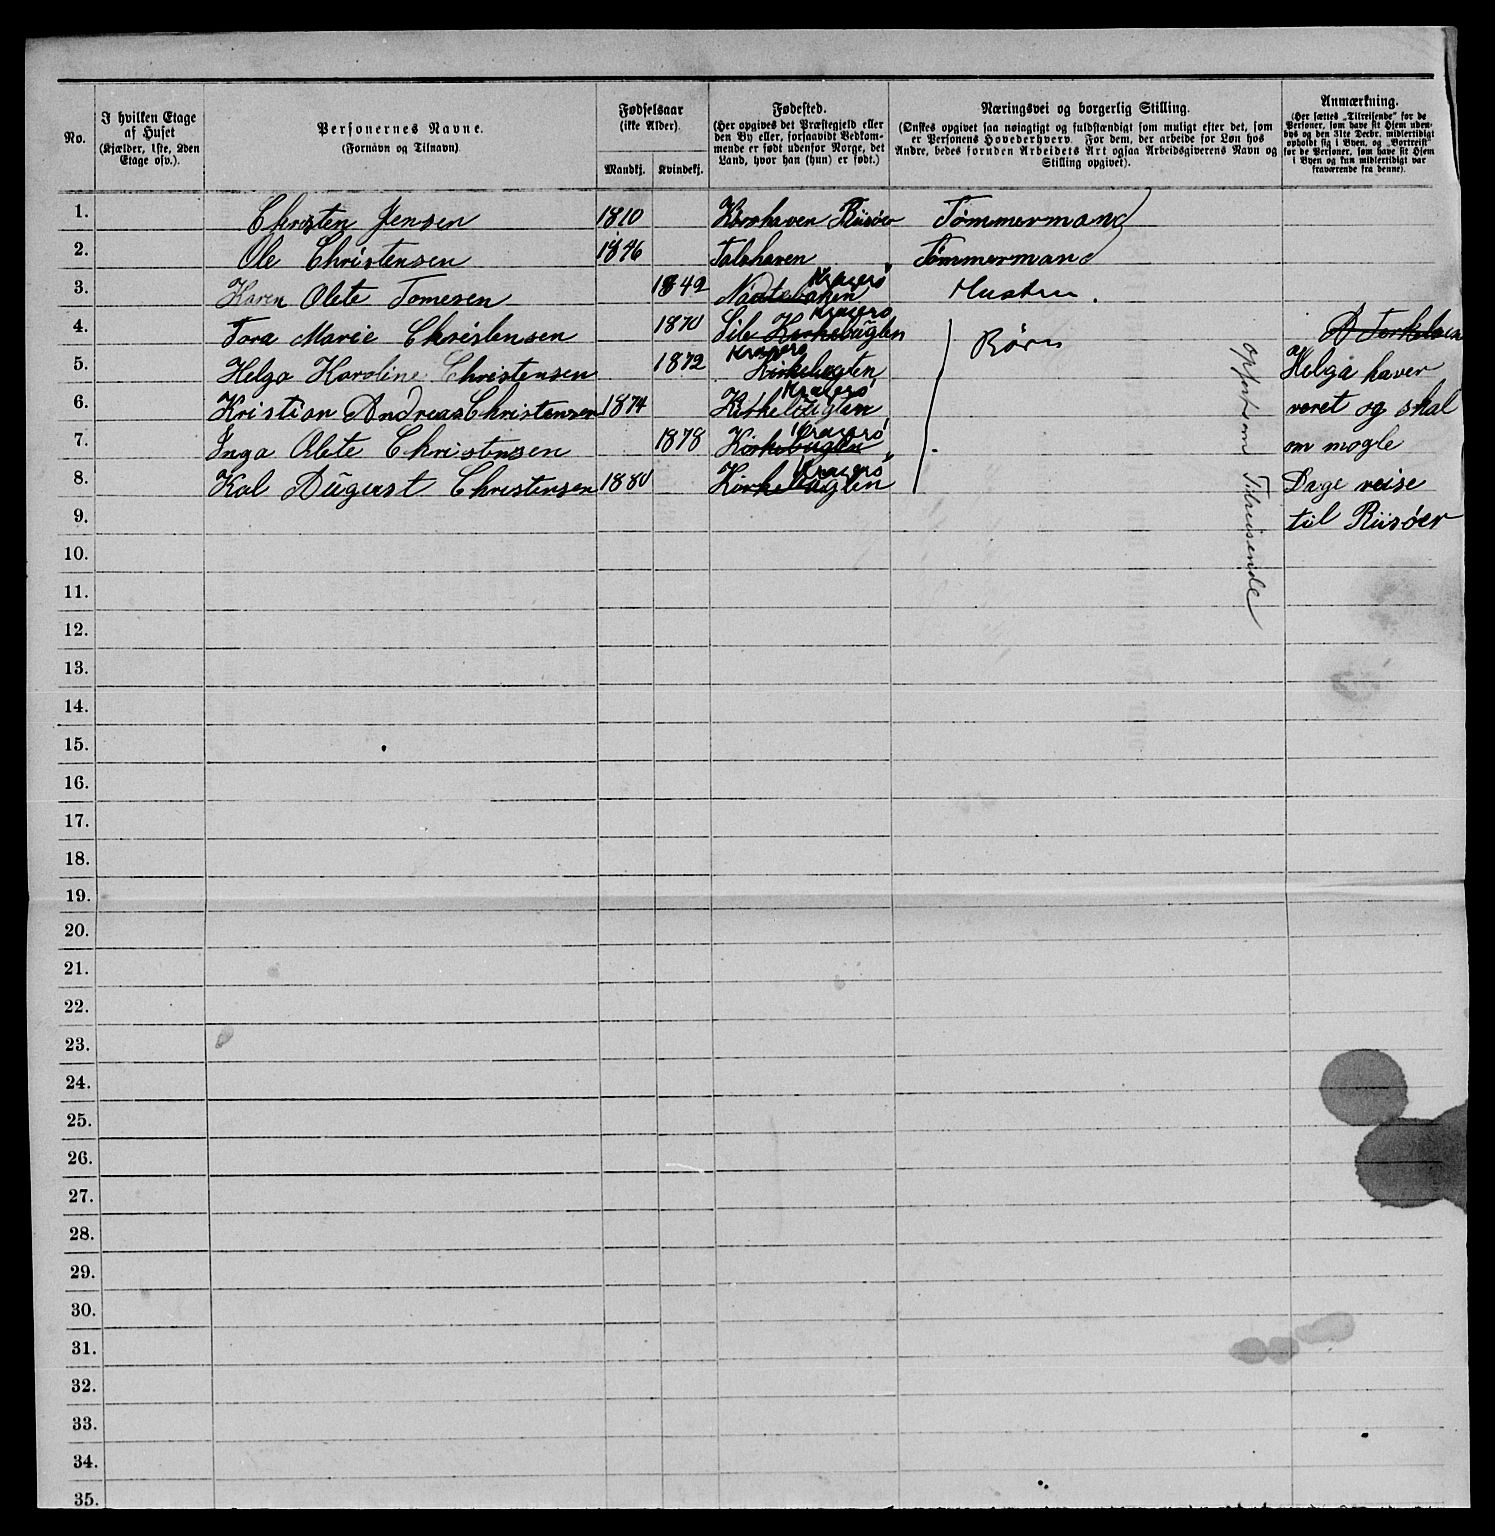 No.
I hvilken Etage
af Huset
(Kjælder, 1ste, 2den
Etage osv.).
Personernes Navne.
(Fornavn og Tilnavn)
Fødselsaar
(ikke Alder).
Mandkj. Kvindekj.
Fødested.
(Her opgives det Præstegjeld eller
den By eller, forsaavidt Vedkom-
mende er født udenfor Norge, det
Land, hvor han (hun) er født.)
Næringsvei og borgerlig Stilling.
(Ønskes opgivet saa nøiagtigt og fuldstændigt som muligt efter det, som
er Personens Hovederhverv. For dem, der arbeide for Løn hos
Andre, bedes foruden Arbeidets Art ogsaa Arbeidsgiverens Navn og
Stilling opgivet).
Anmærkning.
(Her sættes „Tilreisende“ for de
Personer, som have sit Hjem uden-
bys og den 31te Decbr. midlertidigt
opholdt sig i Byen, og „Bortreist“
for de Personer, som have sit Hjem
i Byen og kun midlertidigt var
fraværende fra denne).
1. Christen Jensen 1810 Riisøer Tømmermand
2. Ole Christensen 1846 Tømmermand
3. Karen Olete Tomesen 1842 Kragerø Hustru.
4. Tora Marie Christensen 1870 Sile Kirkebugten Kragerø Børn
5. Helga Karoline Christensen 1872 Kirkebugten Kragerø Helga haver
6. Kristian Andreas Christensen 1874 Kirkebugten Kragerø veret og skal
7. Inga Olete Christensen 1878 Kirkebugten Kragerø om nogle
8. Kal August Christensen 1880 Kirkebugten Kragerø Dage reise
9. til Riisøer
opført som Tilreisende
10.
11.
12.
13.
14.
15.
16.
17.
18.
19.
20.
21.
22.
23.
24.
25.
26.
27.
28.
29.
30.
31.
32.
33.
34.
35.